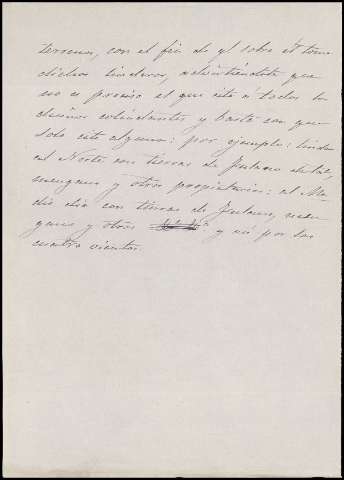 terreno, con el fin de q.e sobre él tome
dichos linderos, advirtiéndole que
no es preciso el que cite á todos los
dueños colindantes y baste con que
solo cite alguno: por ejemplo: linda
al Norte con tierras de Fulano de tal,
mengano y otros propietarios: al Me-
dio dia con tierras de Fulano, men-
gano y otros y así por los
cuatro vientos.